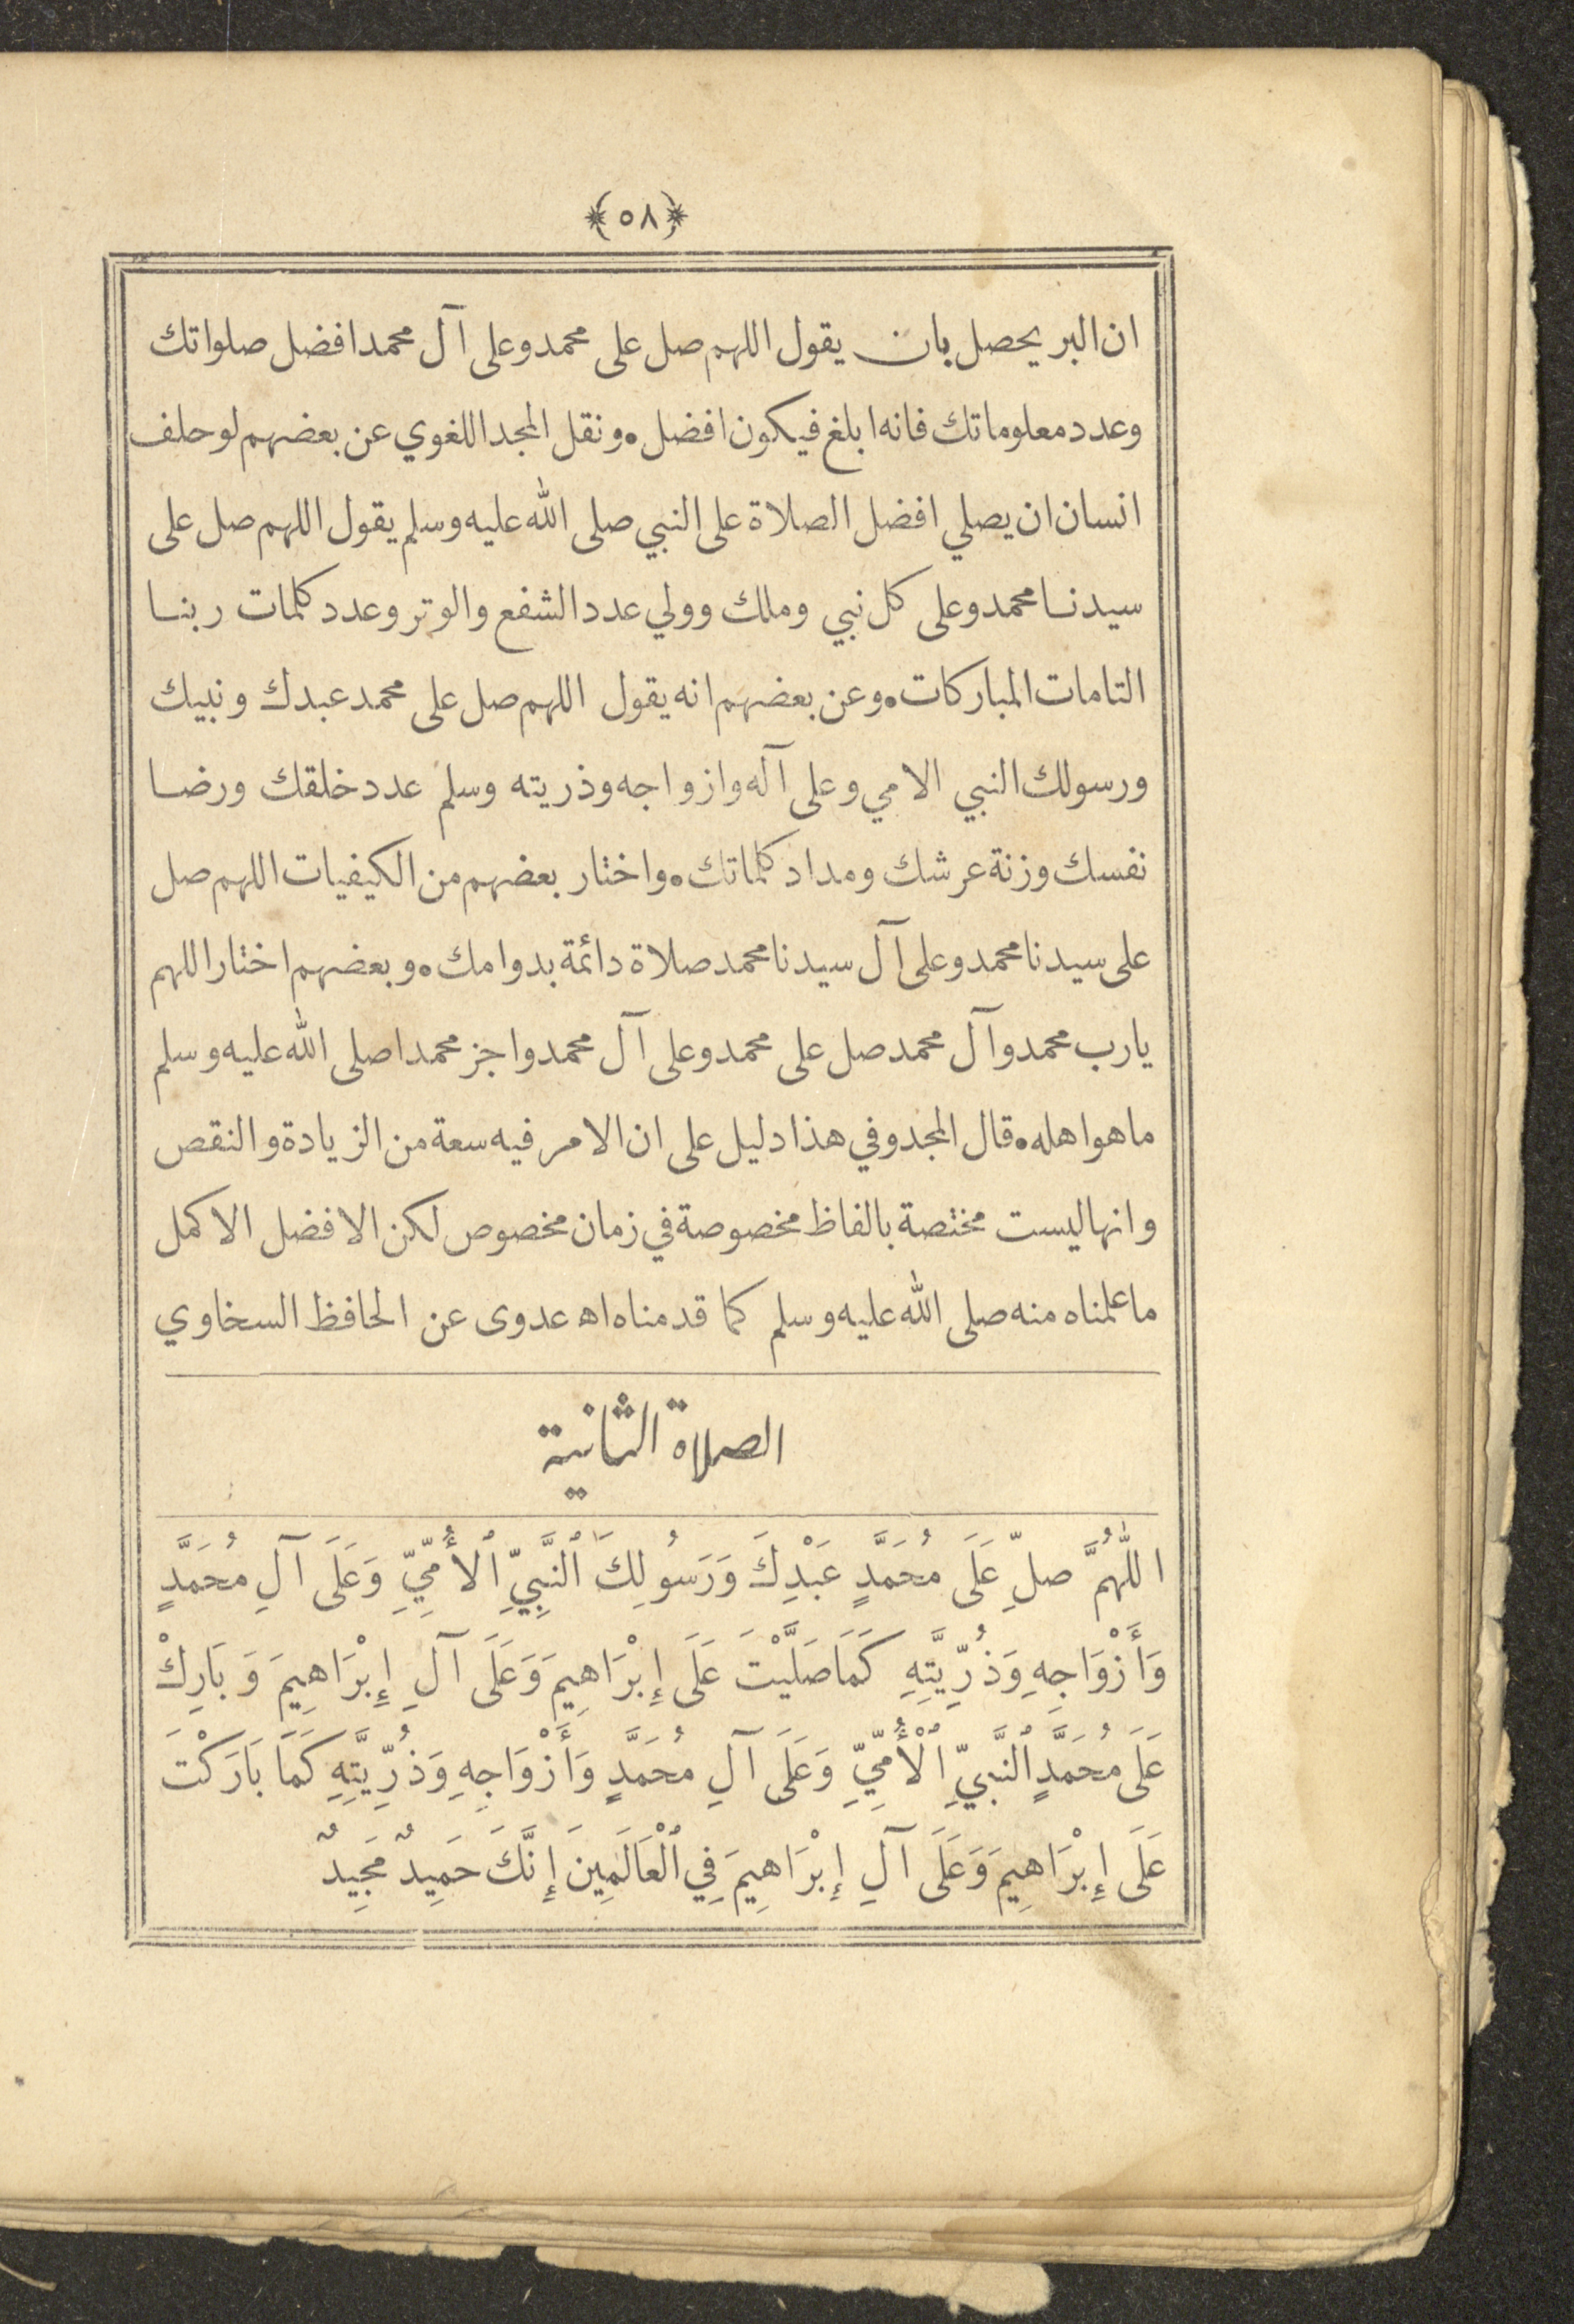 ﴿٥٨﴾
ان البر يحصل بان يقول اللهم صل على محمد وعلى آل محمد افضل صلواتك
وعدد معلوماتك فانه ابلغ فيكون افضل • ونقل المجد اللغوي عن بعضهم لو حلف
انسان ان يصلي افضل الصلاة على النبي صلى الله عليه وسلم يقول اللهم صل على
سيدنا محمد وعلى كل نبي وملك وولي عدد الشفع والوتر وعدد كلمات ربنا
التامات المباركات • وعن بعضهم انه يقول اللهم صل على محمد عبدك ونبيك
ورسولك النبي الامي وعلى آله وازواجه وذريته وسلم عدد خلقك ورضا
نفسك وزنة عرشك ومداد كلماتك • واختار بعضهم من الكيفيات اللهم صل
على سيدنا محمد وعلى آل سيدنا محمد صلاة دائمة بدوامك • وبعضهم اختار اللهم
يا رب محمد وآل محمد صل على محمد وعلى آل محمد واجز محمدا صلى الله عليه وسلم
ما هو اهله • قال المجد وفي هذا دليل على ان الامر فيه سعة من الزيادة والنقص
وانها ليست مختصة بالفاظ مخصوصة في زمان مخصوص لكن الافضل الاكمل
ما علمناه منه صلى الله عليه وسلم كما قدمناه اه عدوى عن الحافظ السخاوي
الصلاة الثانية
اللّٰهُمَّ صلِّ عَلَى مُحَمَّدٍ عَبْدِكَ وَرَسُولِكَ ٱلنَّبِيِّ ٱلأُمِّيِّ وَعَلَى آلِ مُحَمَّدٍ
وَأَزْوَاجِهِ وَذُرِّيَّتِهِ كَمَا صَلَّيْتَ عَلَى إِبْرَاهِيمَ وَعَلَى آلِ إِبْرَاهِيمَ وَبَارِكْ
عَلَى مُحَمَّدٍ ٱلنَّبِيِّ ٱلْأُمِّيِّ وَعَلَى آلِ مُحَمَّدٍ وَأَزْوَاجِهِ وَذُرِّيَّتِهِ كَمَا بَارَكْتَ
عَلَى إِبْرَاهِيمَ وَعَلَى آلِ إِبْرَاهِيمَ فِي ٱلْعَالَمِينَ إِنَّكَ حَمِيدٌ مَجِيدٌ